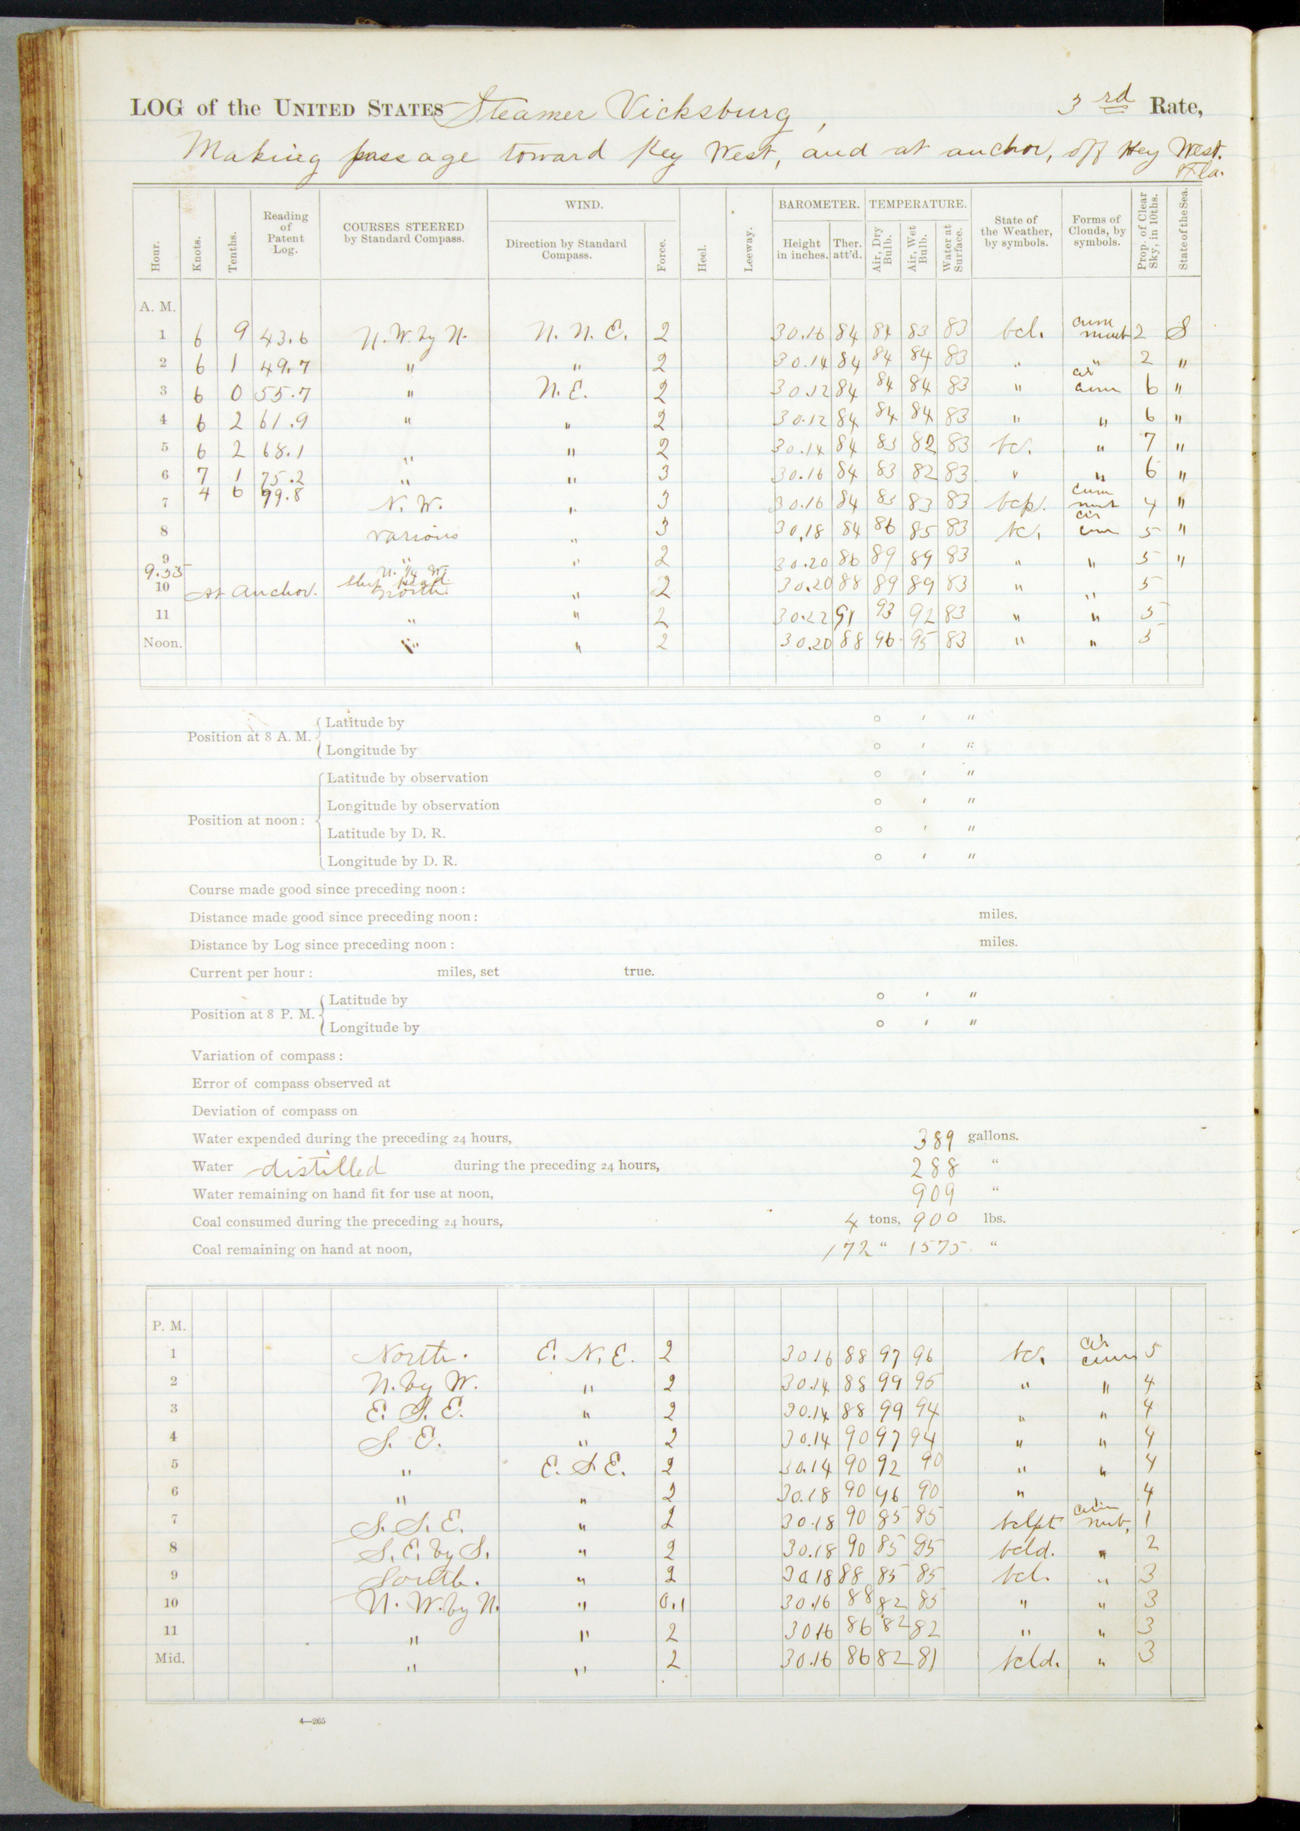 LOG of the UNITED STATES Steamer Vicksburg, 3rd Rate,
Making passage toward Key West, and at anchor, off Key West.
Fla.
Hour. Knots. Tenths. Reading of Patent Log. COURSES STEERED by Standard Compass. WIND. Direction by Standard Compass. Force. Heel. Leeway. BAROMETER. Height in inches. Ther. att'd. TEMPERATURE. Air, Dry Bulb. Air, Wet Bulb. Water at Surface. State of the Weather, by symbols. Forms of Clouds, by symbols. Prop. of Clear Sky, in 10ths. State of the Sea.
A. M.
1 6 9 43.6 N.W. by N. N. N. E. 2 30.16 84 84 83 83 bcl. cum 2 S
2 6 1 49.7 " " 2 30.14 84 84 84 83 " " 2 "
3 6 0 55.7 " N. E. 2 30.12 84 84 84 83 " cir cum 6 "
4 6 2 61.9 " " 2 30.12 84 84 84 83 " " 6 "
5 6 2 68.1 " " 2 30.14 84 83 82 83 bc. " 7 "
6 7 1 75.2 " " 3 30.16 84 83 82 83 " " 6 "
7 4 6 99.8 N. W. " 3 30.16 84 83 83 83 bcp. cum 4 "
8 various " 3 30.18 84 86 85 83 bc. cir cum 5 "
9 " " 2 30.20 86 89 89 83 " " 5 "
9.35 N. by W.
10 At Anchor. Ship Head North. " 2 30.20 88 89 89 83 " " 5
11 " " 2 30.22 91 93 92 83 " " 5
Noon. " " 2 30.20 88 96 95 83 " " 5
Position at 8 A. M. Latitude by ° ' "
Longitude by ° ' "
Position at noon: Latitude by observation ° ' "
Longitude by observation ° ' "
Latitude by D. R. ° ' "
Longitude by D. R. ° ' "
Course made good since preceding noon:
Distance made good since preceding noon: miles.
Distance by Log since preceding noon: miles.
Current per hour: miles, set true.
Position at 8 P. M. Latitude by ° ' "
Longitude by ° ' "
Variation of compass:
Error of compass observed at
Deviation of compass on
Water expended during the preceding 24 hours, 389 gallons.
Water distilled during the preceding 24 hours, 288 "
Water remaining on hand fit for use at noon, 909 "
Coal consumed during the preceding 24 hours, 4 tons, 900 lbs.
Coal remaining on hand at noon, 172 " 1575 "
P. M.
1 North. E. N. E. 2 30.16 88 97 96 bc. cir cum 5
2 N. by W. " 2 30.14 88 99 95 " " 4
3 E. S. E. " 2 30.14 88 99 94 " " 4
4 S. E. " 2 30.14 90 97 94 " " 4
5 " E. S E. 2 30.14 90 92 90 " " 4
6 " " 2 30.18 90 96 90 " 4
7 S. S. E. " 2 30.18 90 85 85 bclpt 1
8 S. E. by S. " 2 30.18 90 85 85 bcld. " 2
9 South. " 2 30.18 88 85 85 bcl. " 3
10 N. W. by N. " 0.1 30.16 88 82 85 " " 3
11 " " 2 30.16 86 82 82 " " 3
Mid. " " 2 30.16 86 82 81 bcld. " 3
4—265